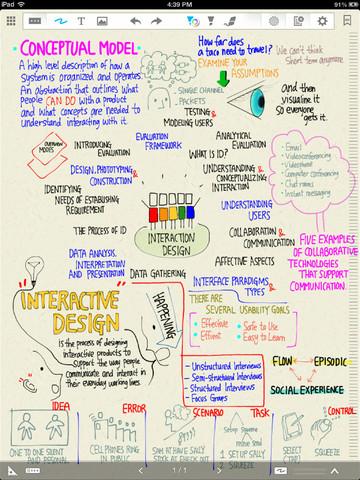 iPad
4:39 PM
91%
CONCEPTUAL MODEL
A high level description of how a
System is organized and operates.
An abstraction that outlines what
people CAN DO with a product
and what concepts are needed to
understand interacting with it
How far does
a taco need to travel?
EXAMINE YOUR
ASSUMPTIONS
We can't think
Short term anymore
SINGLE CHANNEL
PACKETS
TESTING &
MODELING USERS
and then
visualize it
So everyone
gets it.
OVERVIEW
MODES
INTRODUCING
EVALUATION
EVALUATION
FRAMEWORK
ANALYTICAL
EVALUATION
WHAT IS ID?
DESIGN, PROTOTYPING &
CONSTRUCTION
UNDERSTANDING &
CONCEPTUALIZING
INTERACTION
• Email
• Videoconferencing
• Videophone
• Computer conferencing
• Chat rooms
• Instant messaging
IDENTIFYING
NEEDS OF ESTABLISHING
REQUIREMENT
UNDERSTANDING
USERS
THE PROCESS OF ID
INTERACTION
DESIGN
COLLABORATION &
COMMUNICATION
FIVE EXAMPLES
OF COLLABORATIVE
TECHNOLOGIES
THAT SUPPORT
COMMUNICATION
DATA ANALYSIS,
INTERPRETATION
AND PRESENTATION
DATA GATHERING
AFFECTIVE ASPECTS
INTERFACE PARADIGMS &
TYPES
"INTERACTIVE
DESIGN"
is the process of designing
interactive products to
Support the way people
Communicate and interact in
their everyday working lives
HAPPENING
THERE ARE
SEVERAL USABILITY GOALS
• Effective
• Efficient
• Safe to Use
• Easy to Learn
- Unstructured Interviews
- Semi-structured Interviews
- Structured Interviews
- Focus Groups
FLOW
EPISODIC
SOCIAL EXPERIENCE
IDEA
ERROR
SCENARIO
TASK
CONTROL
ONE TO ONE SILENT
CELL PHONES RING
IN PUBLIC
SAM AT HAVE SALLY
STOCK AT CHECK OUT
1 SETUP SALLY
2 SQUEEZE
SELECT
SQUEEZE
1 / 1